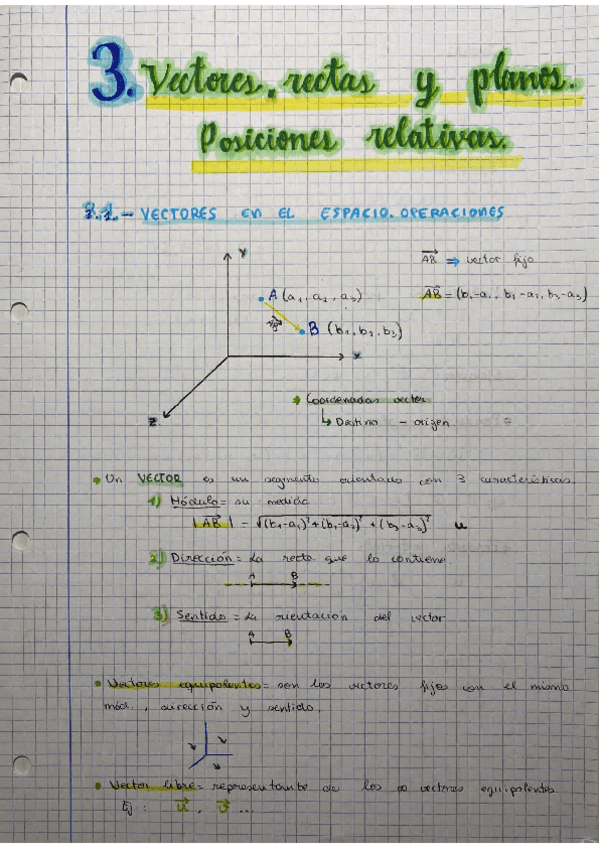 3. Vectores, rectas y planos.
Posiciones relativas.
3.1.- VECTORES EN EL ESPACIO. OPERACIONES
Y
AB ⇒ vector fijo
A (a₁, a₂, a₃)
AB = (b₁-a₁, b₂-a₂, b₃-a₃)
AB
B (b₁, b₂, b₃)
X
Coordenadas vector
Z
↳ Destino - origen
Un VECTOR es un segmento orientado con 3 características.
1) Módulo = su medida
|AB| = √(b₁-a₁)²+(b₂-a₂)²+(b₃-a₃)² u
2) Dirección = La recta que lo contiene
A B
3) Sentido = La orientación del vector
A B
Vectores equipolentes = son los vectores fijos con el mismo
mód., dirección y sentido.
Vector libre = representante de los ∞ vectores equipolentes
Ej: u, v ...